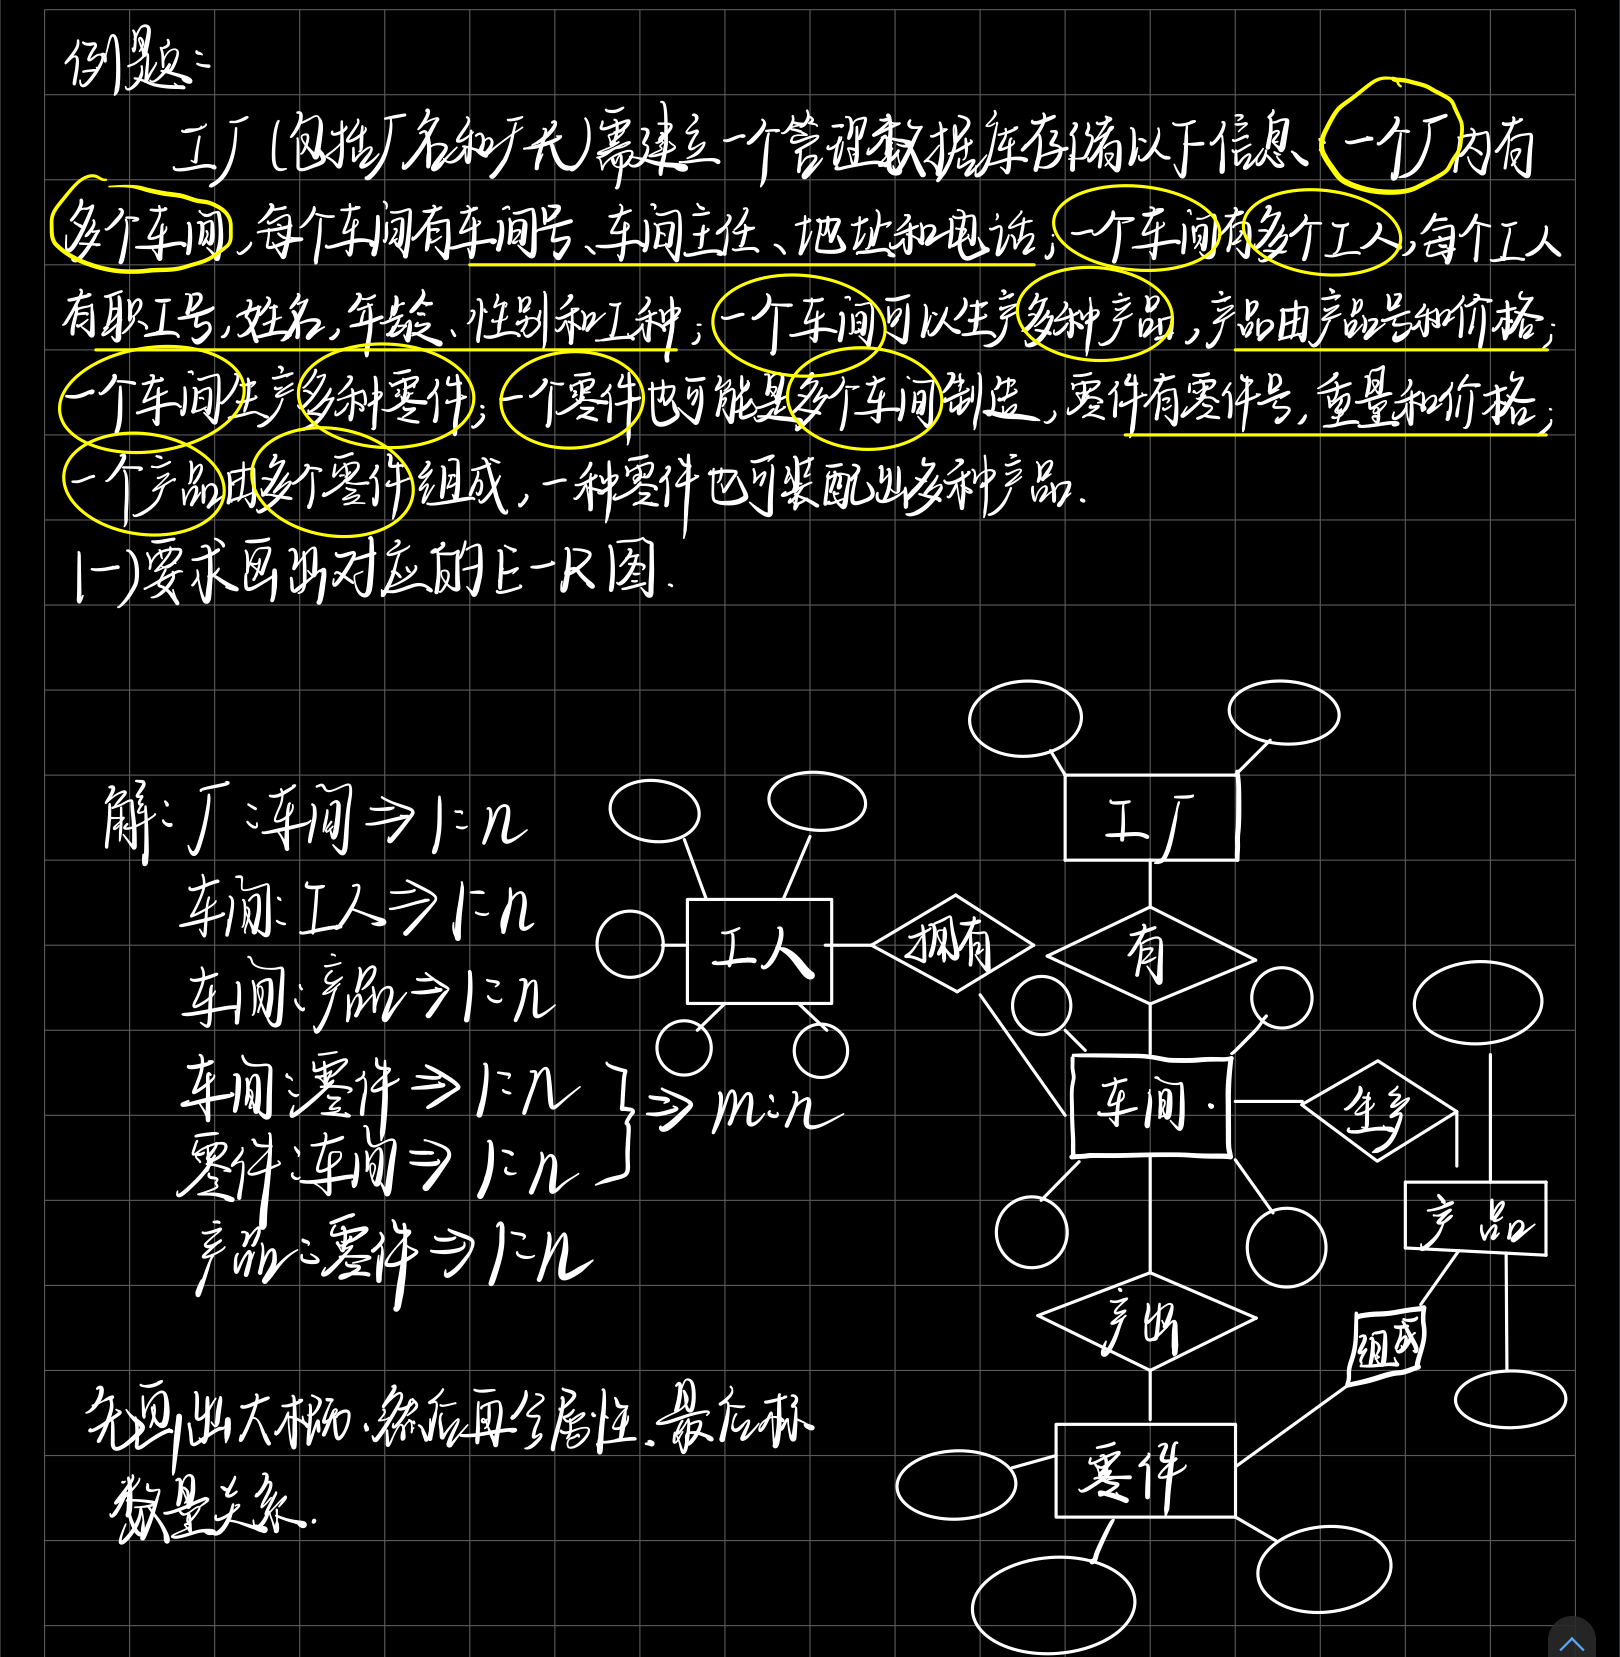 例题:
工厂(包括厂名和厂长)需建立一个管理数据库存储以下信息、一个厂内有
多个车间,每个车间有车间号、车间主任、地址和电话;一个车间有多个工人,每个工人
有职工号,姓名,年龄、性别和工种;一个车间可以生产多种产品,产品由产品号和价格;
一个车间生产多种零件;一个零件也可能是多个车间制造,零件有零件号,重量和价格;
一个产品由多个零件组成,一种零件也可装配出多种产品.
(一)要求画出对应的E-R图.
解:厂:车间⇒1:n
车间:工人⇒1:n
车间:产品⇒1:n
车间:零件⇒1:n
零件:车间⇒1:n
⇒m:n
产品:零件⇒1:n
先画出大概.然后再分属性.最后标
数量关系.
工厂
工人
拥有
有
车间.
生多
产品
产出
组成
零件